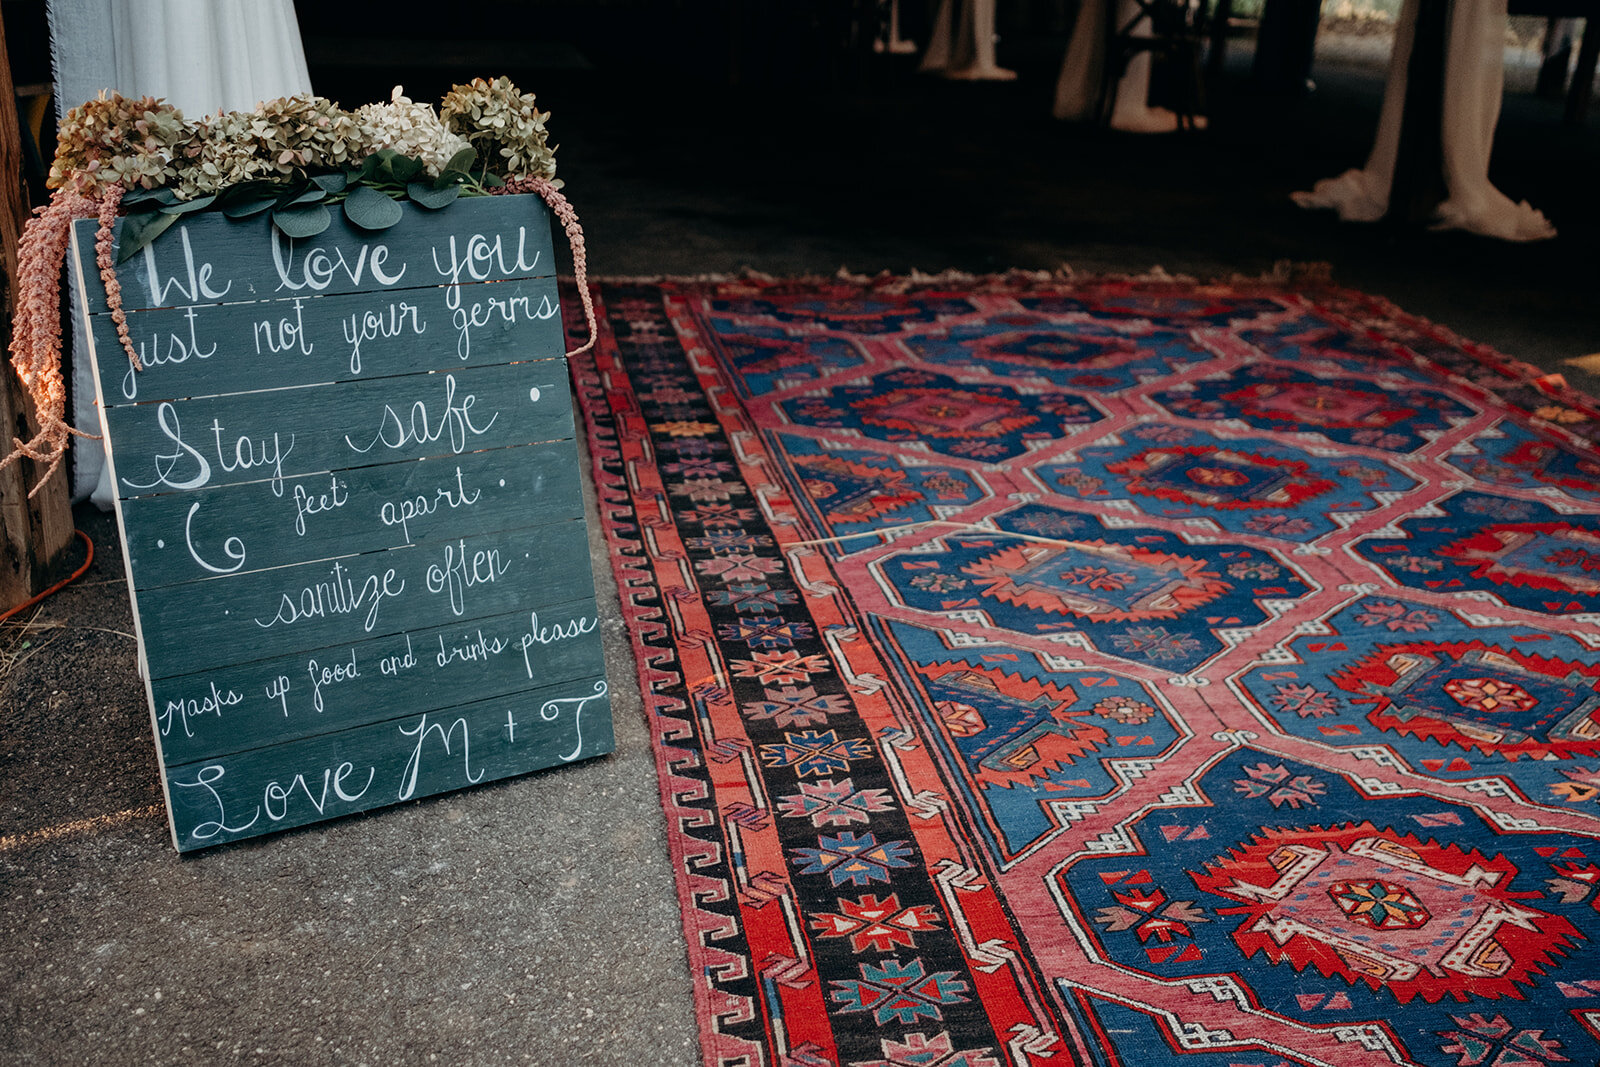 We love you
just not your germs
Stay safe •
6 feet apart •
• sanitize often •
Masks up food and drinks please
Love M + T